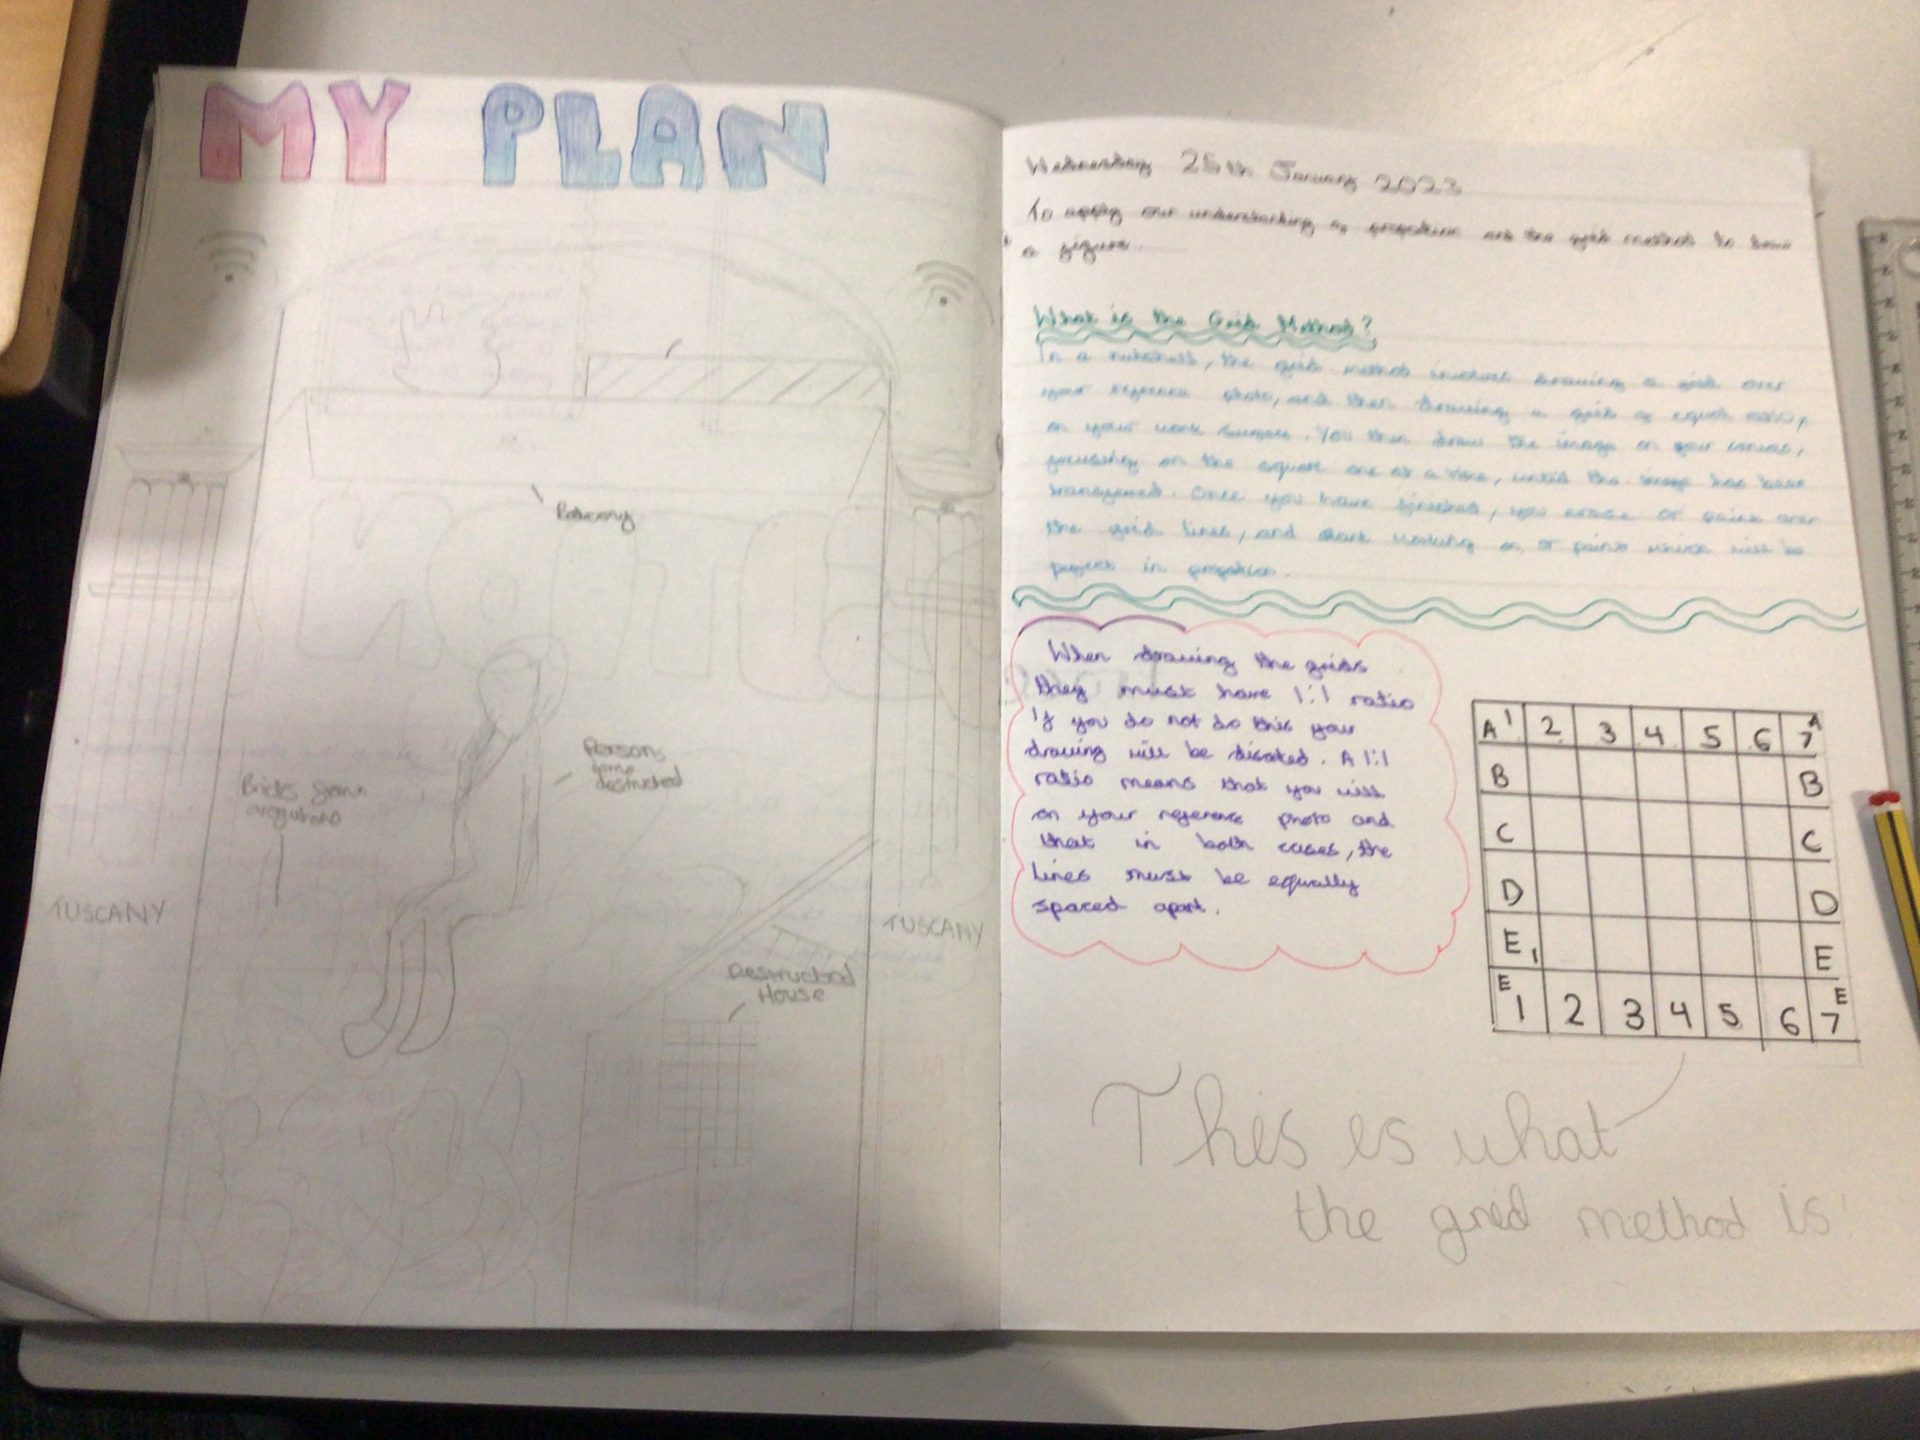 MY PLAN
Balcony
Persons
arms
destructed
Bricks from
TUSCANY
TUSCANY
Destructed
House
Wednesday 25th January 2023
To apply our understanding of proportion and the grid method to draw
a figure
What is the Grid Method?
In a nutshell, the grid method involves drawing a grid over
your reference photo, and then drawing a grid of equal ratio,
on your work surface. You then draw the image on your canvas,
focusing on the square one at a time, until the image has been
transferred. Once you have finished, you erase or paint over
the grid lines, and start working on or paint which will be
perfect in proportion.
When drawing the grids
they must have 1:1 ratio
If you do not do this your
drawing will be disoted. A 1:1
ratio means that you will
on your reference photo and
that in both cases, the
lines must be equally
spaced apart.
A 1 2 3 4 5 6 7 A
B B
C C
D D
E 1 E
E 1 2 3 4 5 6 7 E
This is what
the grid method is